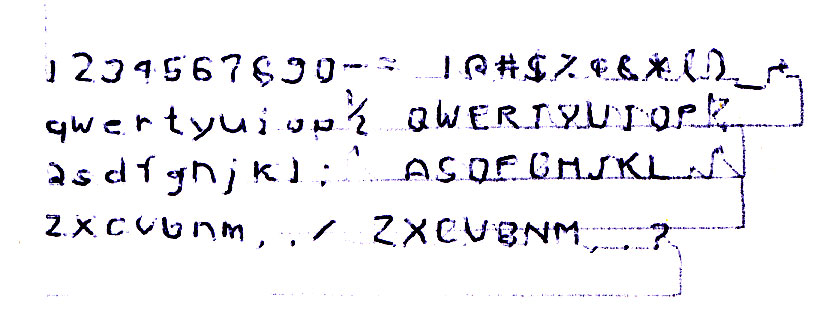 1234567890-= !@#$%¢&*()_+
qwertyuiop½ QWERTYUIOP¼
asdfghjkl;' ASDFGHJKL
zxcvbnm,./ ZXCVBNM,.?